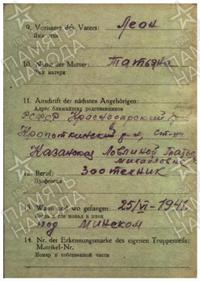 9. Vorname des Vaters: Леон
Имя отца
10. Name der Mutter: Татьяна
Имя матери
11. Anschrift der nächsten Angehörigen:
Адрес ближайших родственников
РСФСР Краснодарский
Кропоткинский р-н, стан.
Казанская
12. Beruf: Зоотехник
Профессия
13. Wann und wo gefangen: 25/VI-1941.
Когда и где попал в плен
под Минском
14. Nr. der Erkennungsmarke des eigenen Truppenteils:
Matrikel-Nr.
Номер в собственной части